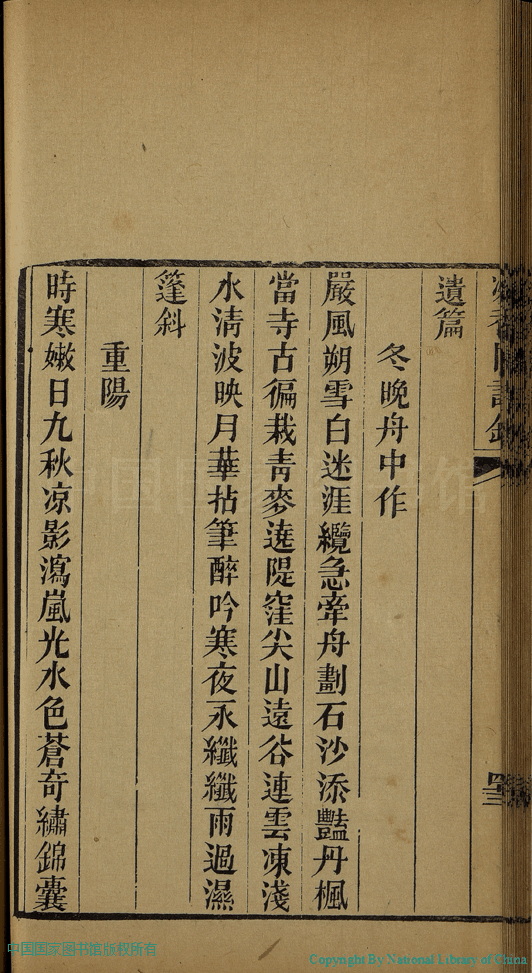 遺篇
冬晚舟中作
嚴風朔雪白迷涯纜急牽舟劃石沙添豔丹楓
當寺古徧栽靑麥遶隄窪尖山遠谷連雲凍淺
水淸波映月華拈筆醉吟寒夜永纖纖雨過濕
篷斜
重陽
時寒嫩日九秋凉影瀉嵐光水色蒼奇繡錦囊
中国国家图书馆版权所有
Copyright By National Library of China